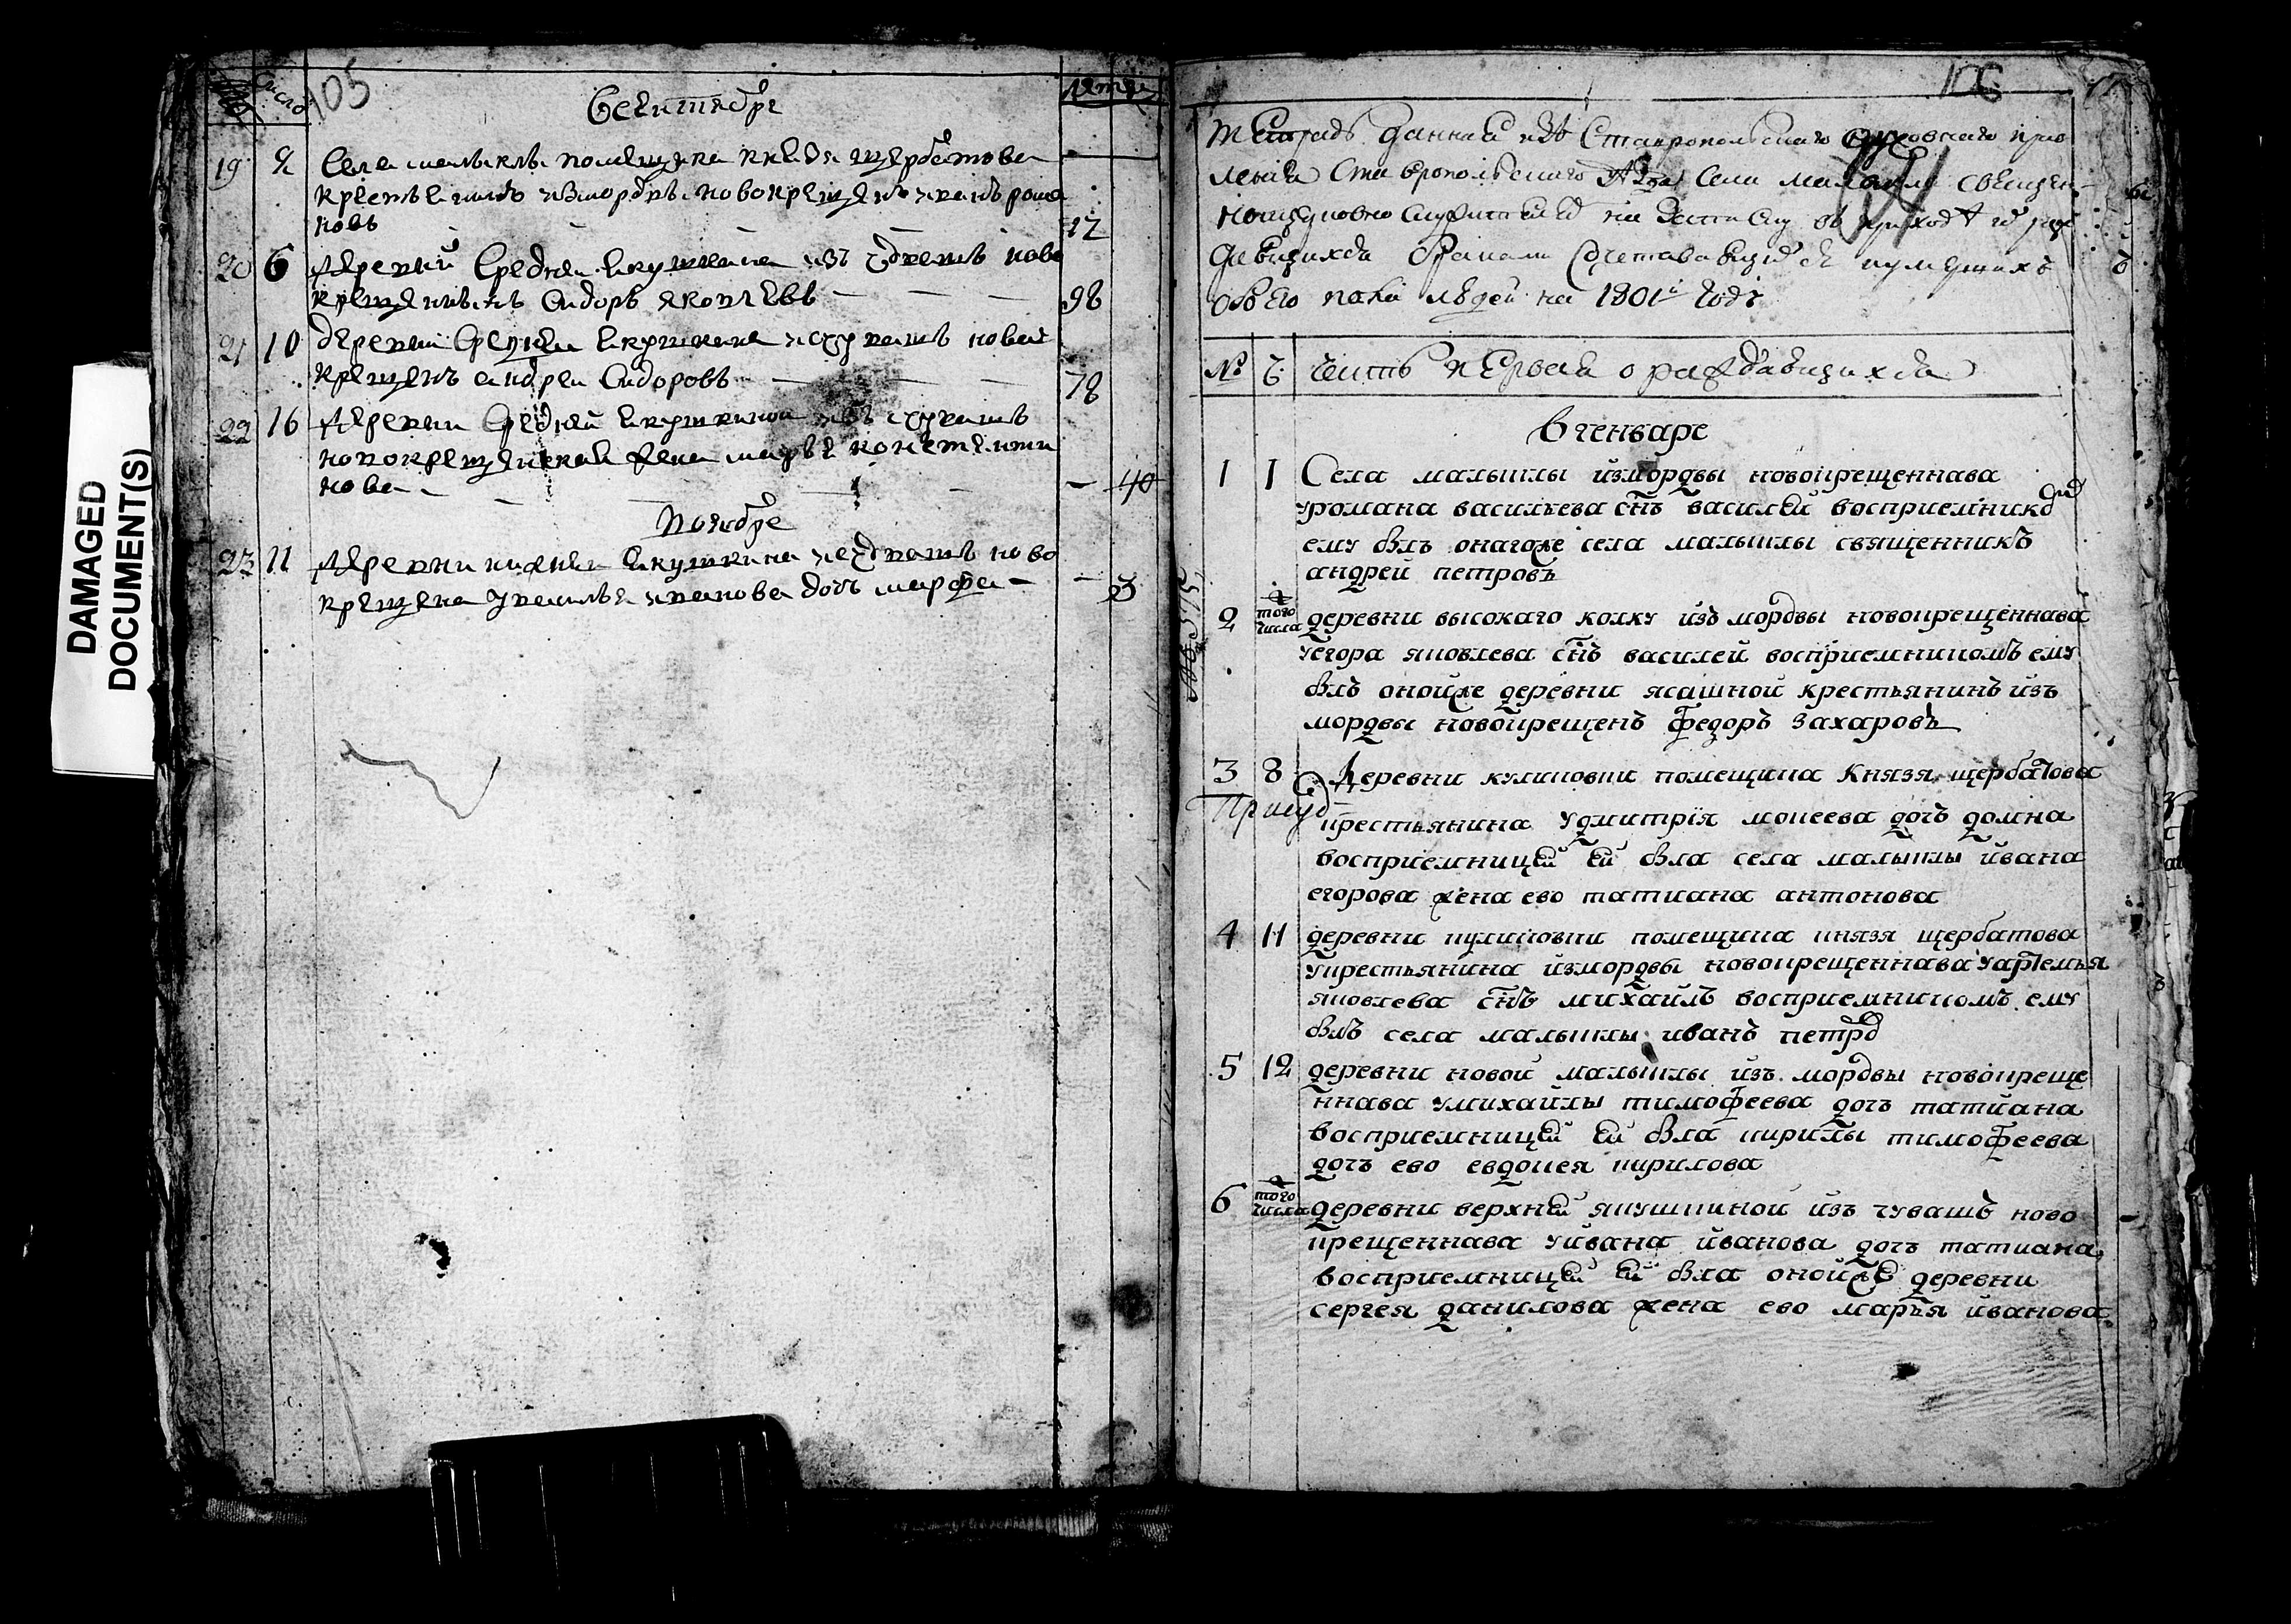 число
105
лета
Сентября
19 2 Села малыклы помещика князя щербатова
крестьянинъ измордвы новокрещенъ иванъ рома
новъ 17
20 6 деревни Средней якушкина изъ чювашъ ново
крещеныхъ Сидоръ яковлевъ 98
21 10 деревни Средней якушкина исчювашъ новой
крещенъ андреи Сидоровъ 78
22 16 деревни Средней якушкиной изъ чювашъ
новокрещенская жена марья константи
нова 40
Ноября
23 11 деревни нижней якушкина исчювашъ ново
крещена иванова дочь марфа 3
DAMAGED
DOCUMENT(S)
106
Тетрадь данная изъ Ставропольскаго духовнаго прав
ленія Ставропольскаго села малыклы священ
ноцерковнослужителей на записку въ приходѣ ихъ рож
давшихся бракомъ сочетавшихся и умершихъ
обоего пола людей на 1801й годъ
№ Ч часть первая о раждавшихся
В генваре
1 1 Села малыклы измордвы новокрещеннава
уромана васильева снъ василей восприемникомъ
ему былъ оногоже села малыклы священникъ
андрей петровъ
2 того числа деревни высокаго колку изъ мордвы новокрещеннава
уегора яковлева снъ василей восприемникомъ ему
былъ онойже деревни ясашной крестьянинъ изъ
мордвы новокрещенъ федоръ захаровъ
3 8 Деревни куликовки помещика князя щербатова
крестьянина удмитрія мокеева дочь домна
восприемницей ей была села малыклы ивана
егорова жена ево татиана антонова
4 11 деревни куликовки помещика князя щербатова
укрестьянина измордвы новокрещеннава уартемья
яковлева снъ михаилъ восприемникомъ ему
былъ села малыклы иванъ петровъ
5 12 деревни новой малыклы изъ мордвы новокреще
ннава умихайлы тимофеева дочь татиана
восприемницей ей была кирилы тимофеева
дочь ево евдокея кирилова
6 того числа деревни верхней якушкиной изъ чувашъ ново
крещеннава уивана иванова дочь татиана
восприемницей ей была онойже деревни
сергея данилова жена ево марья иванова